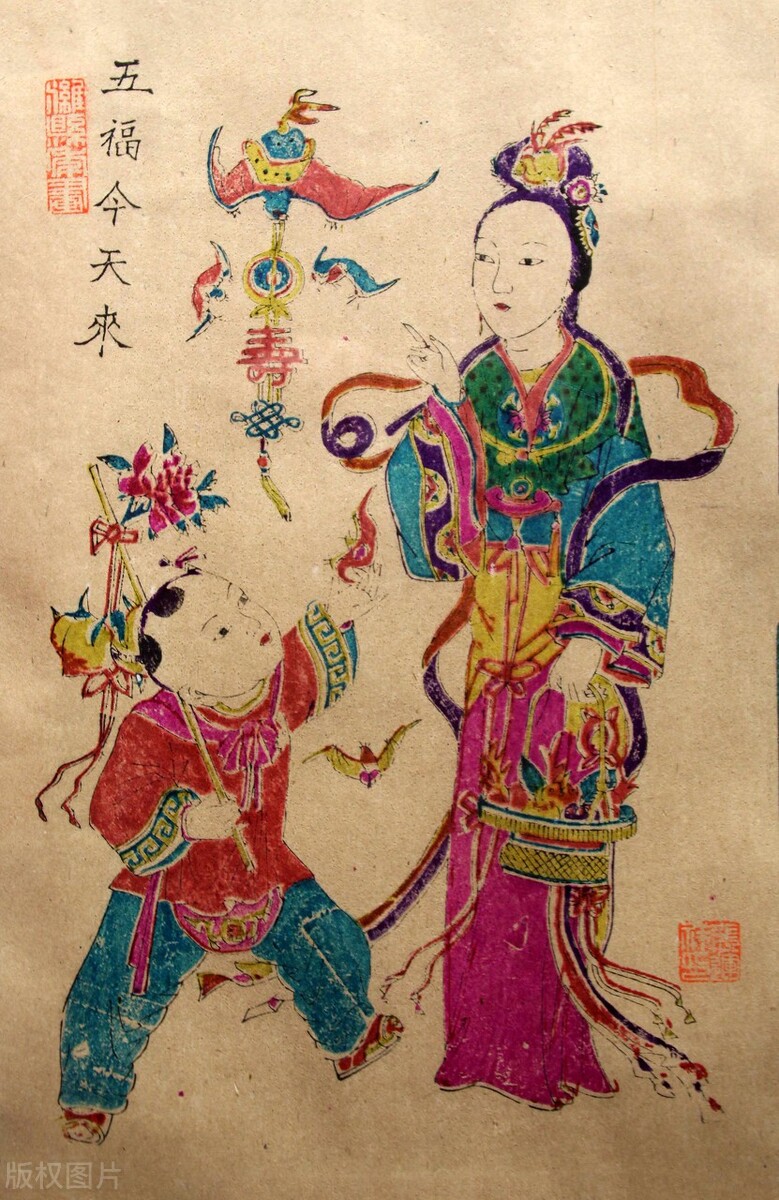 五福今天來
濰縣年畫
壽
版权图片